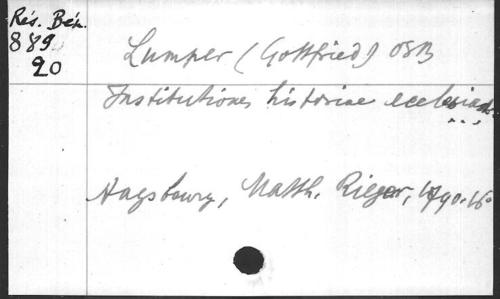 Rés. Bén.
889
20
Lumper (Gottfried) OSB
Institutiones historiae ecclesiast.
...
Augsbourg, Matth. Rieger, 1790. 16°